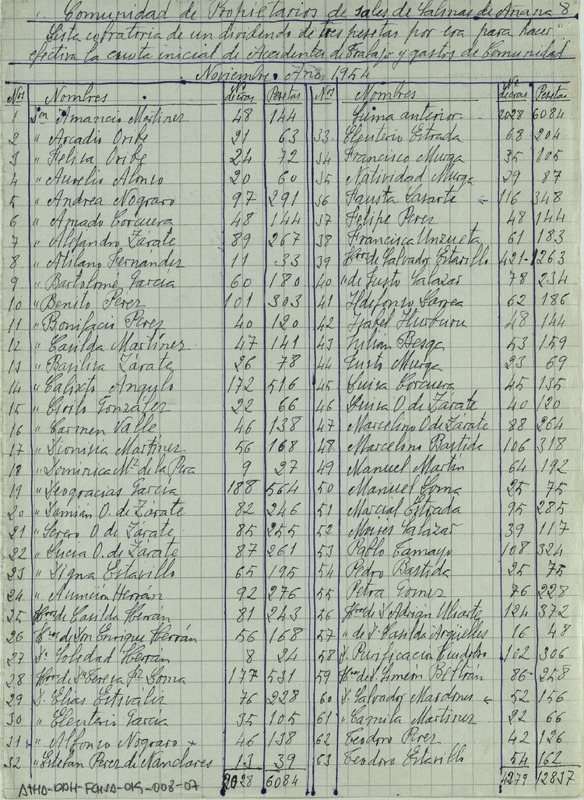 " Comunidad de Propietarios de sales de Salinas de Añana 8.
Lista cobratoria de un dividendo de tres pesetas por era para hacer
efectiva la cuota inicial de Accidentes de Trabajo y gastos de Comunidad
Noviembre Año 1954
Nos Nombres Nº de eras Pesetas Nos Nombres Nº de eras Pesetas
1 Don Amancio Martinez 48 144 Suma anterior 2028 6084
2 " Arcadio Oribe 21 63 33 Eleuterio Estrada 68 204
3 " Felisa Oribe 24 72 34 Francisco Murga 35 105
4 " Aurelio Alonso 20 60 35 Natividad Murga 29 87
5 " Andrea Nograro 97 291 36 Fausta Lasarte 116 348
6 " Amado Corcuera 48 144 37 Felipe Perez 48 144
7 " Alejandro Zárate 89 267 38 Francisca Unzueta 61 183
8 " Atilano Fernandez 11 33 39 Hros de Salvador Estavillo 421 1263
9 " Bartolomé Garcia 60 180 40 " de Justo Salazar 78 234
10 " Benito Perez 101 303 41 Ildefonso Larrea 62 186
11 " Bonifacio Perez 40 120 42 Isabel Iturburu 48 144
12 " Casilda Martinez 47 141 43 Julian Besga 53 159
13 " Basilisa Zárate 26 78 44 Justo Murga 23 69
14 " Calixto Angulo 172 516 45 Luisa Corcuera 45 135
15 " Gonzalez 22 66 46 Luisa O. de Zarate 40 120
16 " Carmen Valle 46 138 47 Marcelino O de Zárate 88 264
17 " Dionisia Martinez 56 168 48 Marcelino Bastida 106 318
18 " Dominica Mz de la Pera 9 27 49 Manuel Martin 64 192
19 " Deogracias Garcia 188 564 50 Manuel Loma 25 75
20 " Demian O. de Zarate 82 246 51 Marcial Estrada 95 285
21 " O. de Zárate 85 255 52 Moises Salazar 39 117
22 " Lucia O. de Zárate 87 261 53 Pablo Tamayo 108 324
23 " Digna Estavillo 65 195 54 Pedro Bastida 25 75
24 " Asunción Herran 92 276 55 Petra Gomez 76 228
25 Hros de Casilda Herán 81 243 56 Hros de D. Adrian Uliarte 124 372
26 Hros de Don Enrique Herrán 56 168 57 " de D. Casilda Argüelles 16 48
27 Dª Soledad Herrán 8 24 58 D. Purificacion 102 306
28 Hros de Dª Teresa Loma 177 531 59 Hros de D. Simeon Beltrán 86 258
29 D. Elias Estibaliz 76 228 60 D. Salvador Mardones 52 156
30 " Eleuterio Garcia 35 105 61 " Camila Martinez 22 66
31 " Alfonso Nograro 46 138 62 Teodoro Perez 42 126
32 " Esteban Perez de Nanclares 13 39 63 Teodoro Estavillo 54 162
2028 6084 4279 12837
ATHA-DAH-FCHSA-016-008-07